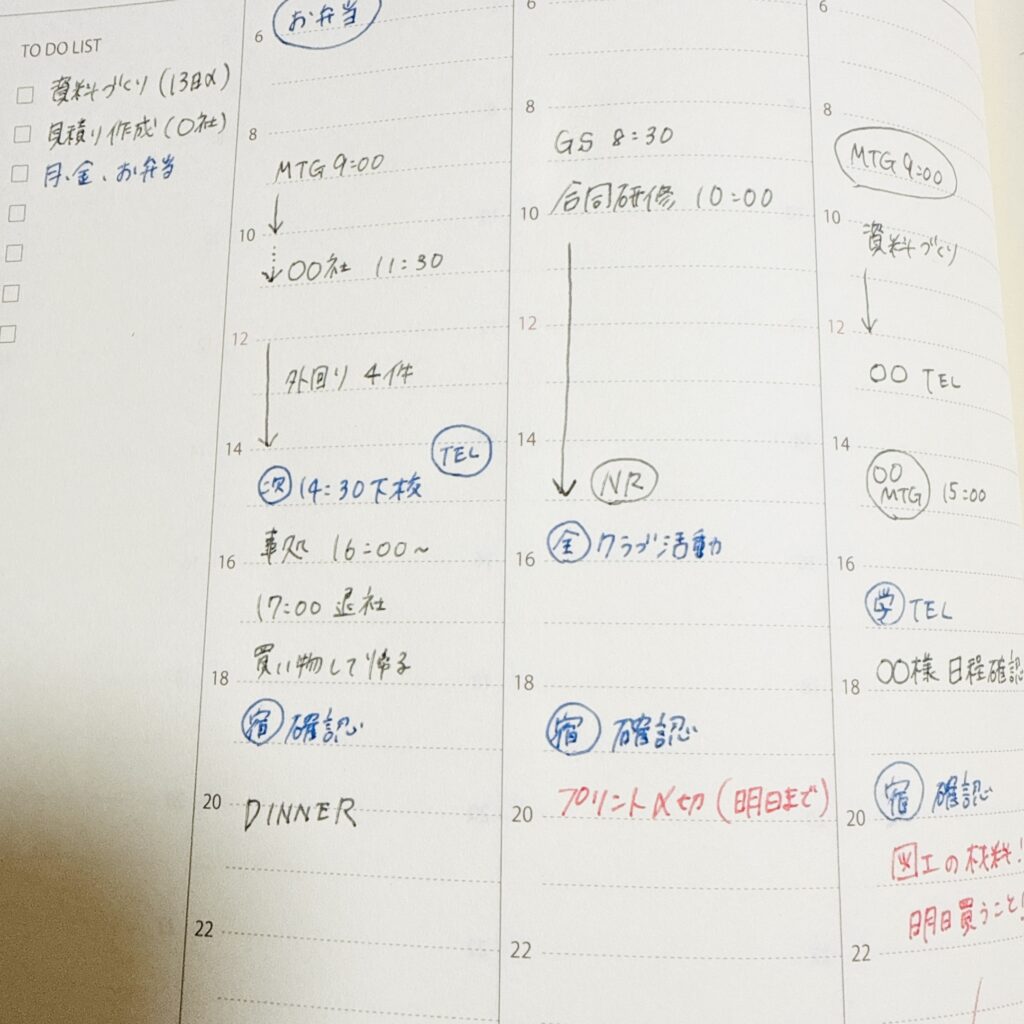 TO DO LIST
資料づくり(13日〆)
見積り作成(〇社)
月、金、お弁当
6
お弁当
8
MTG 9:00
10
〇〇社 11:30
12
外回り 4件
14
TEL
次 14:30下校
事処 16:00~
16
17:00 退社
買い物して帰る
18
宿 確認
20
DINNER
22
6
8
GS 8:30
合同研修 10:00
10
12
14
NR
16
金 クラブ活動
18
宿 確認
プリント〆切(明日まで)
20
22
6
8
MTG 9:00
10
資料づくり
12
〇〇 TEL
14
〇〇 MTG 15:00
16
学 TEL
〇〇様 日程確認
18
宿 確認
20
図工の材料!
明日買うこと!
22